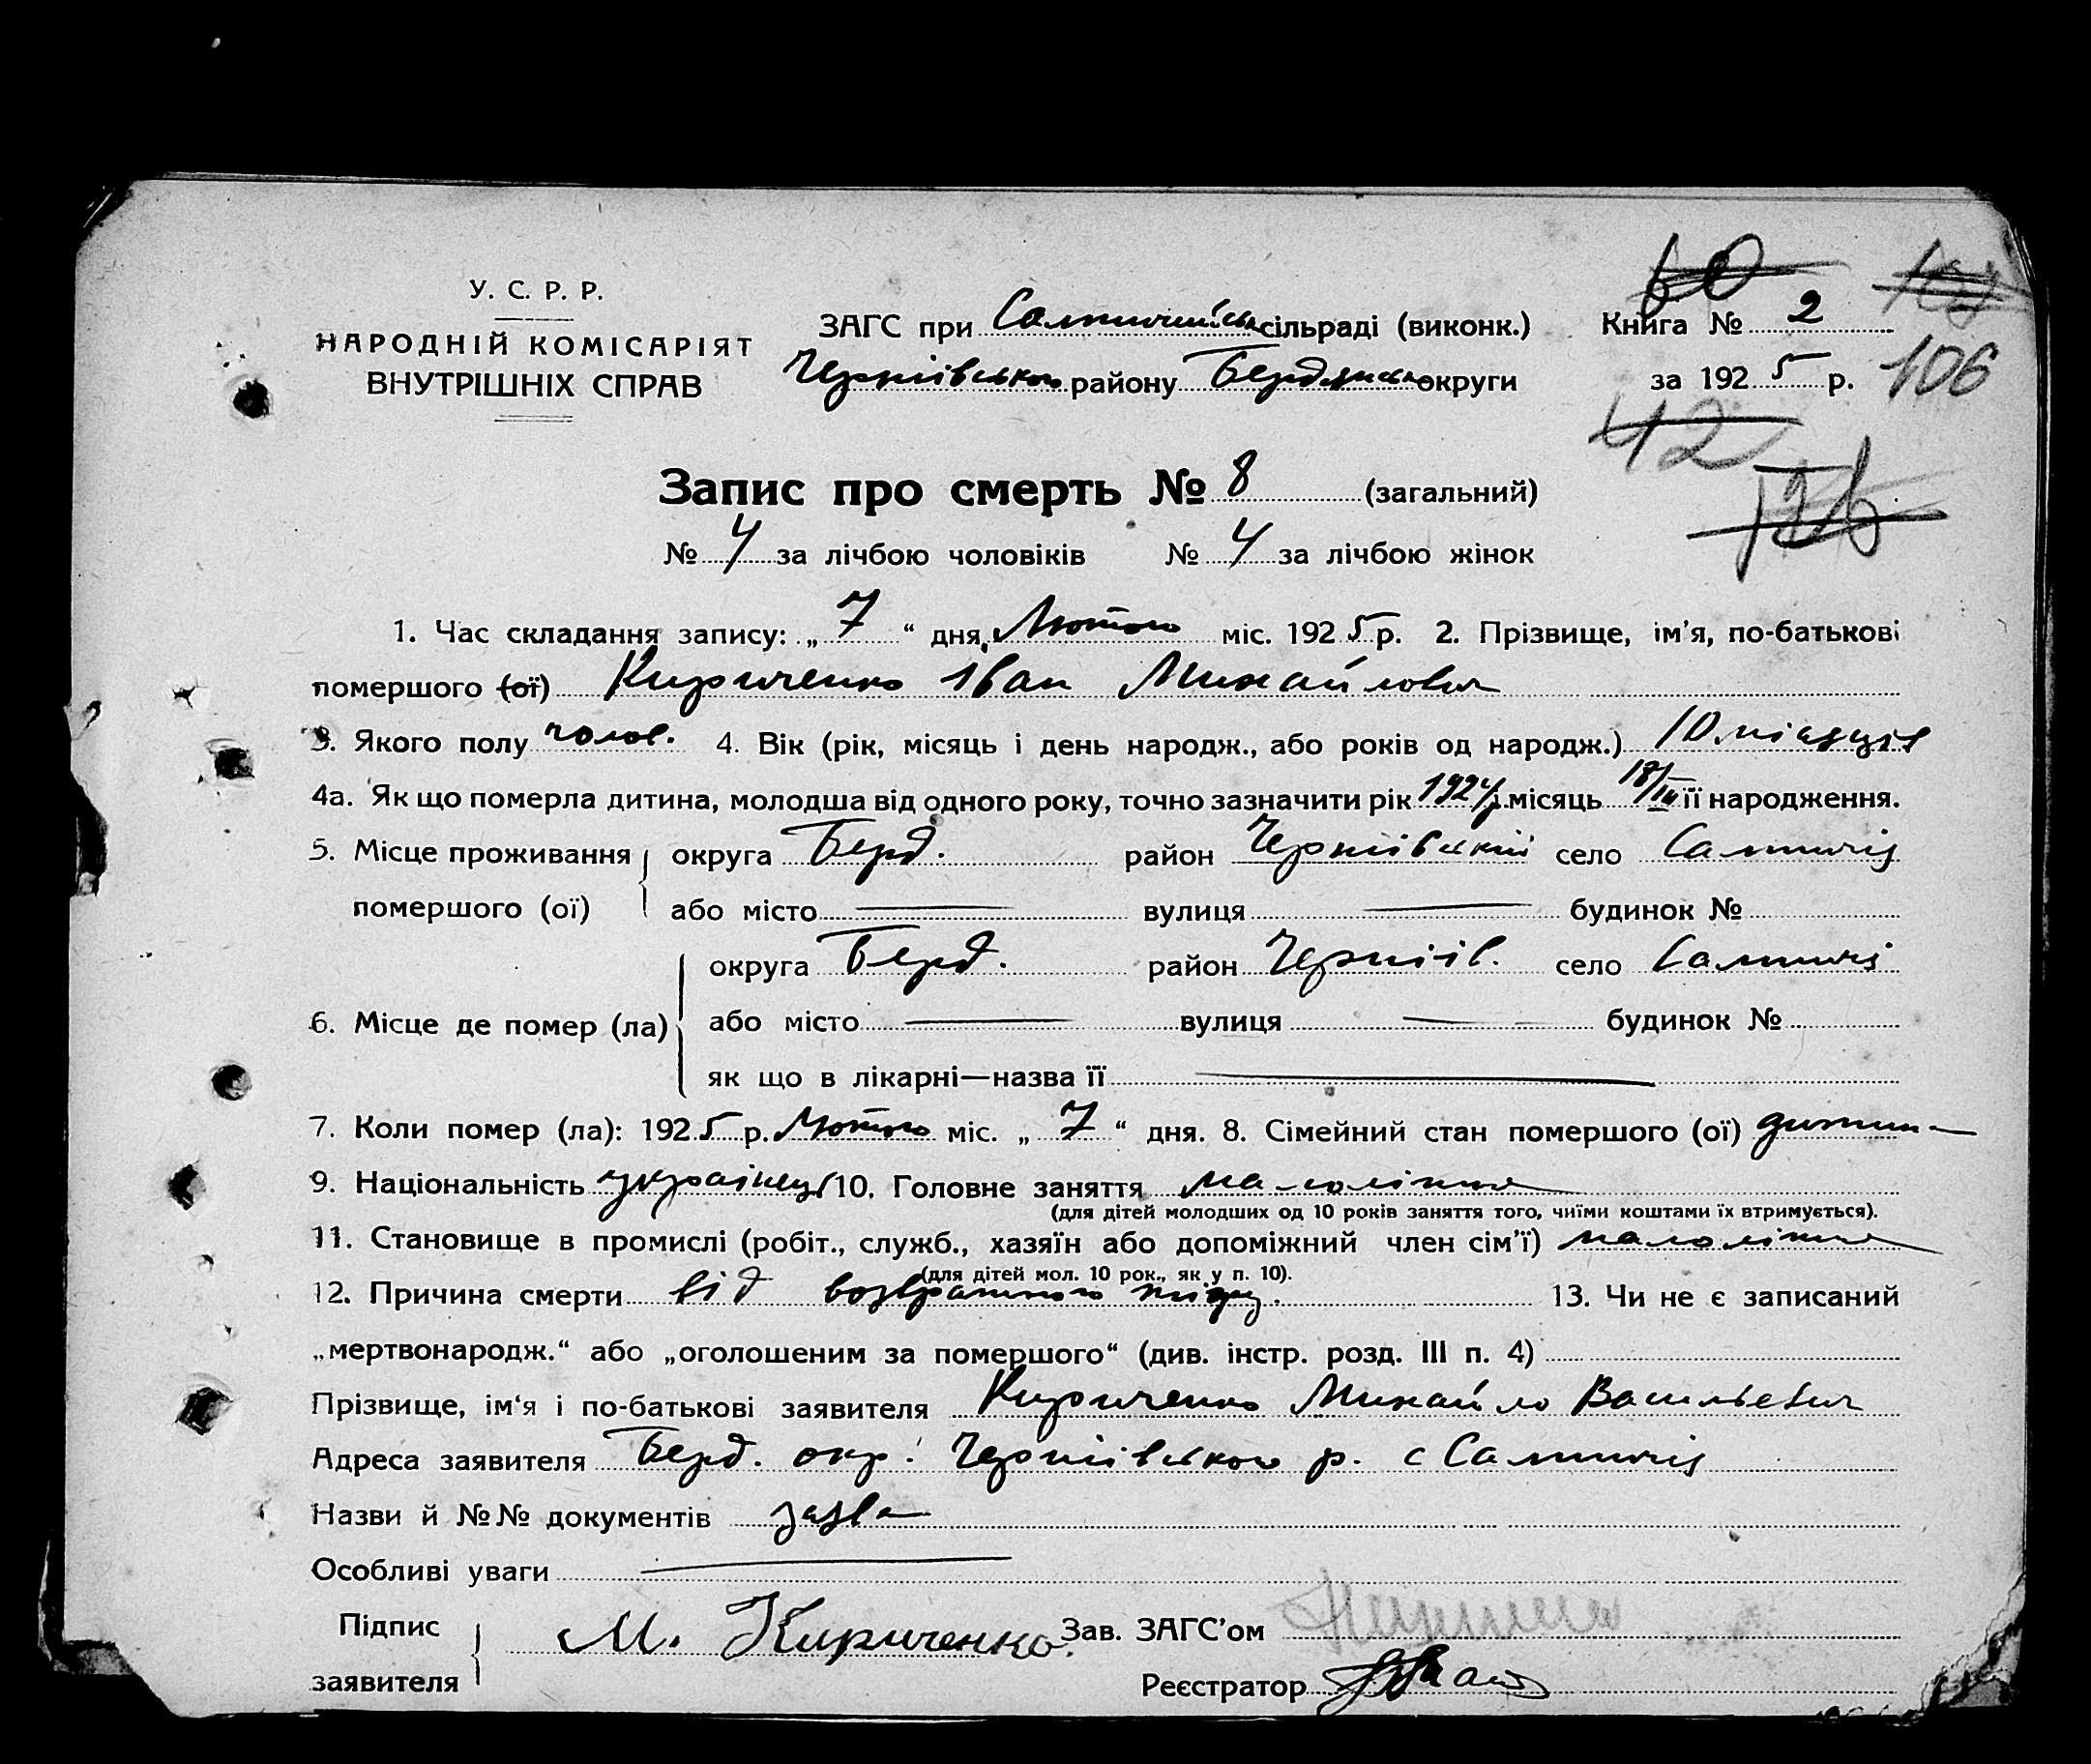 У. С. Р. Р.
НАРОДНІЙ КОМІСАРІЯТ
ВНУТРІШНІХ СПРАВ
ЗАГС при Салтичийськ сільраді (виконк.)
Чернігівського району Бердянсько округи
60
Книга № 2
за 1925 р.
106
42
126
Запис про смерть № 8 (загальний)
№ 4 за лічбою чоловіків № 4 за лічбою жінок
1. Час складання запису: „ 7 “ дня Лютого міс. 1925 р. 2. Прізвище, ім'я, по-батькові
помершого (ої) Кириченко Іван Михайлович
3. Якого полу чолов. 4. Вік (рік, місяць і день народж., або років од народж.) 10 місяців
4а. Як що померла дитина, молодша від одного року, точно зазначити рік 1924 р. місяць 18/IV її народження.
5. Місце проживання округа Берд. район Чернігівський село Салтичія
помершого (ої) або місто вулиця будинок №
округа Берд. район Чернігів. село Салтичі
6. Місце де помер (ла) або місто вулиця будинок №
як що в лікарні—назва її
7. Коли помер (ла): 1925 р. Лютого міс. „ 7 “ дня. 8. Сімейний стан помершого (ої) дитина
9. Національність українець 10. Головне заняття малолітне
(для дітей молодших од 10 років заняття того, чиїми коштами їх втримується).
11. Становище в промислі (робіт., служб., хазяїн або допоміжний член сім'ї) малолітне
(для дітей мол. 10 рок., як у п. 10).
12. Причина смерти від возвратного тифу. 13. Чи не є записаний
„мертвонародж.“ або „оголошеним за помершого“ (див. інстр. розд. III п. 4)
Прізвище, ім'я і по-батькові заявителя Кириченко Михайло Васильевич
Адреса заявителя Берд. окр. Чернігівського р. с Салтичія
Назви й №№ документів заява
Особливі уваги
Підпис
заявителя М. Кириченко.
Зав. ЗАГС'ом
Реєстратор